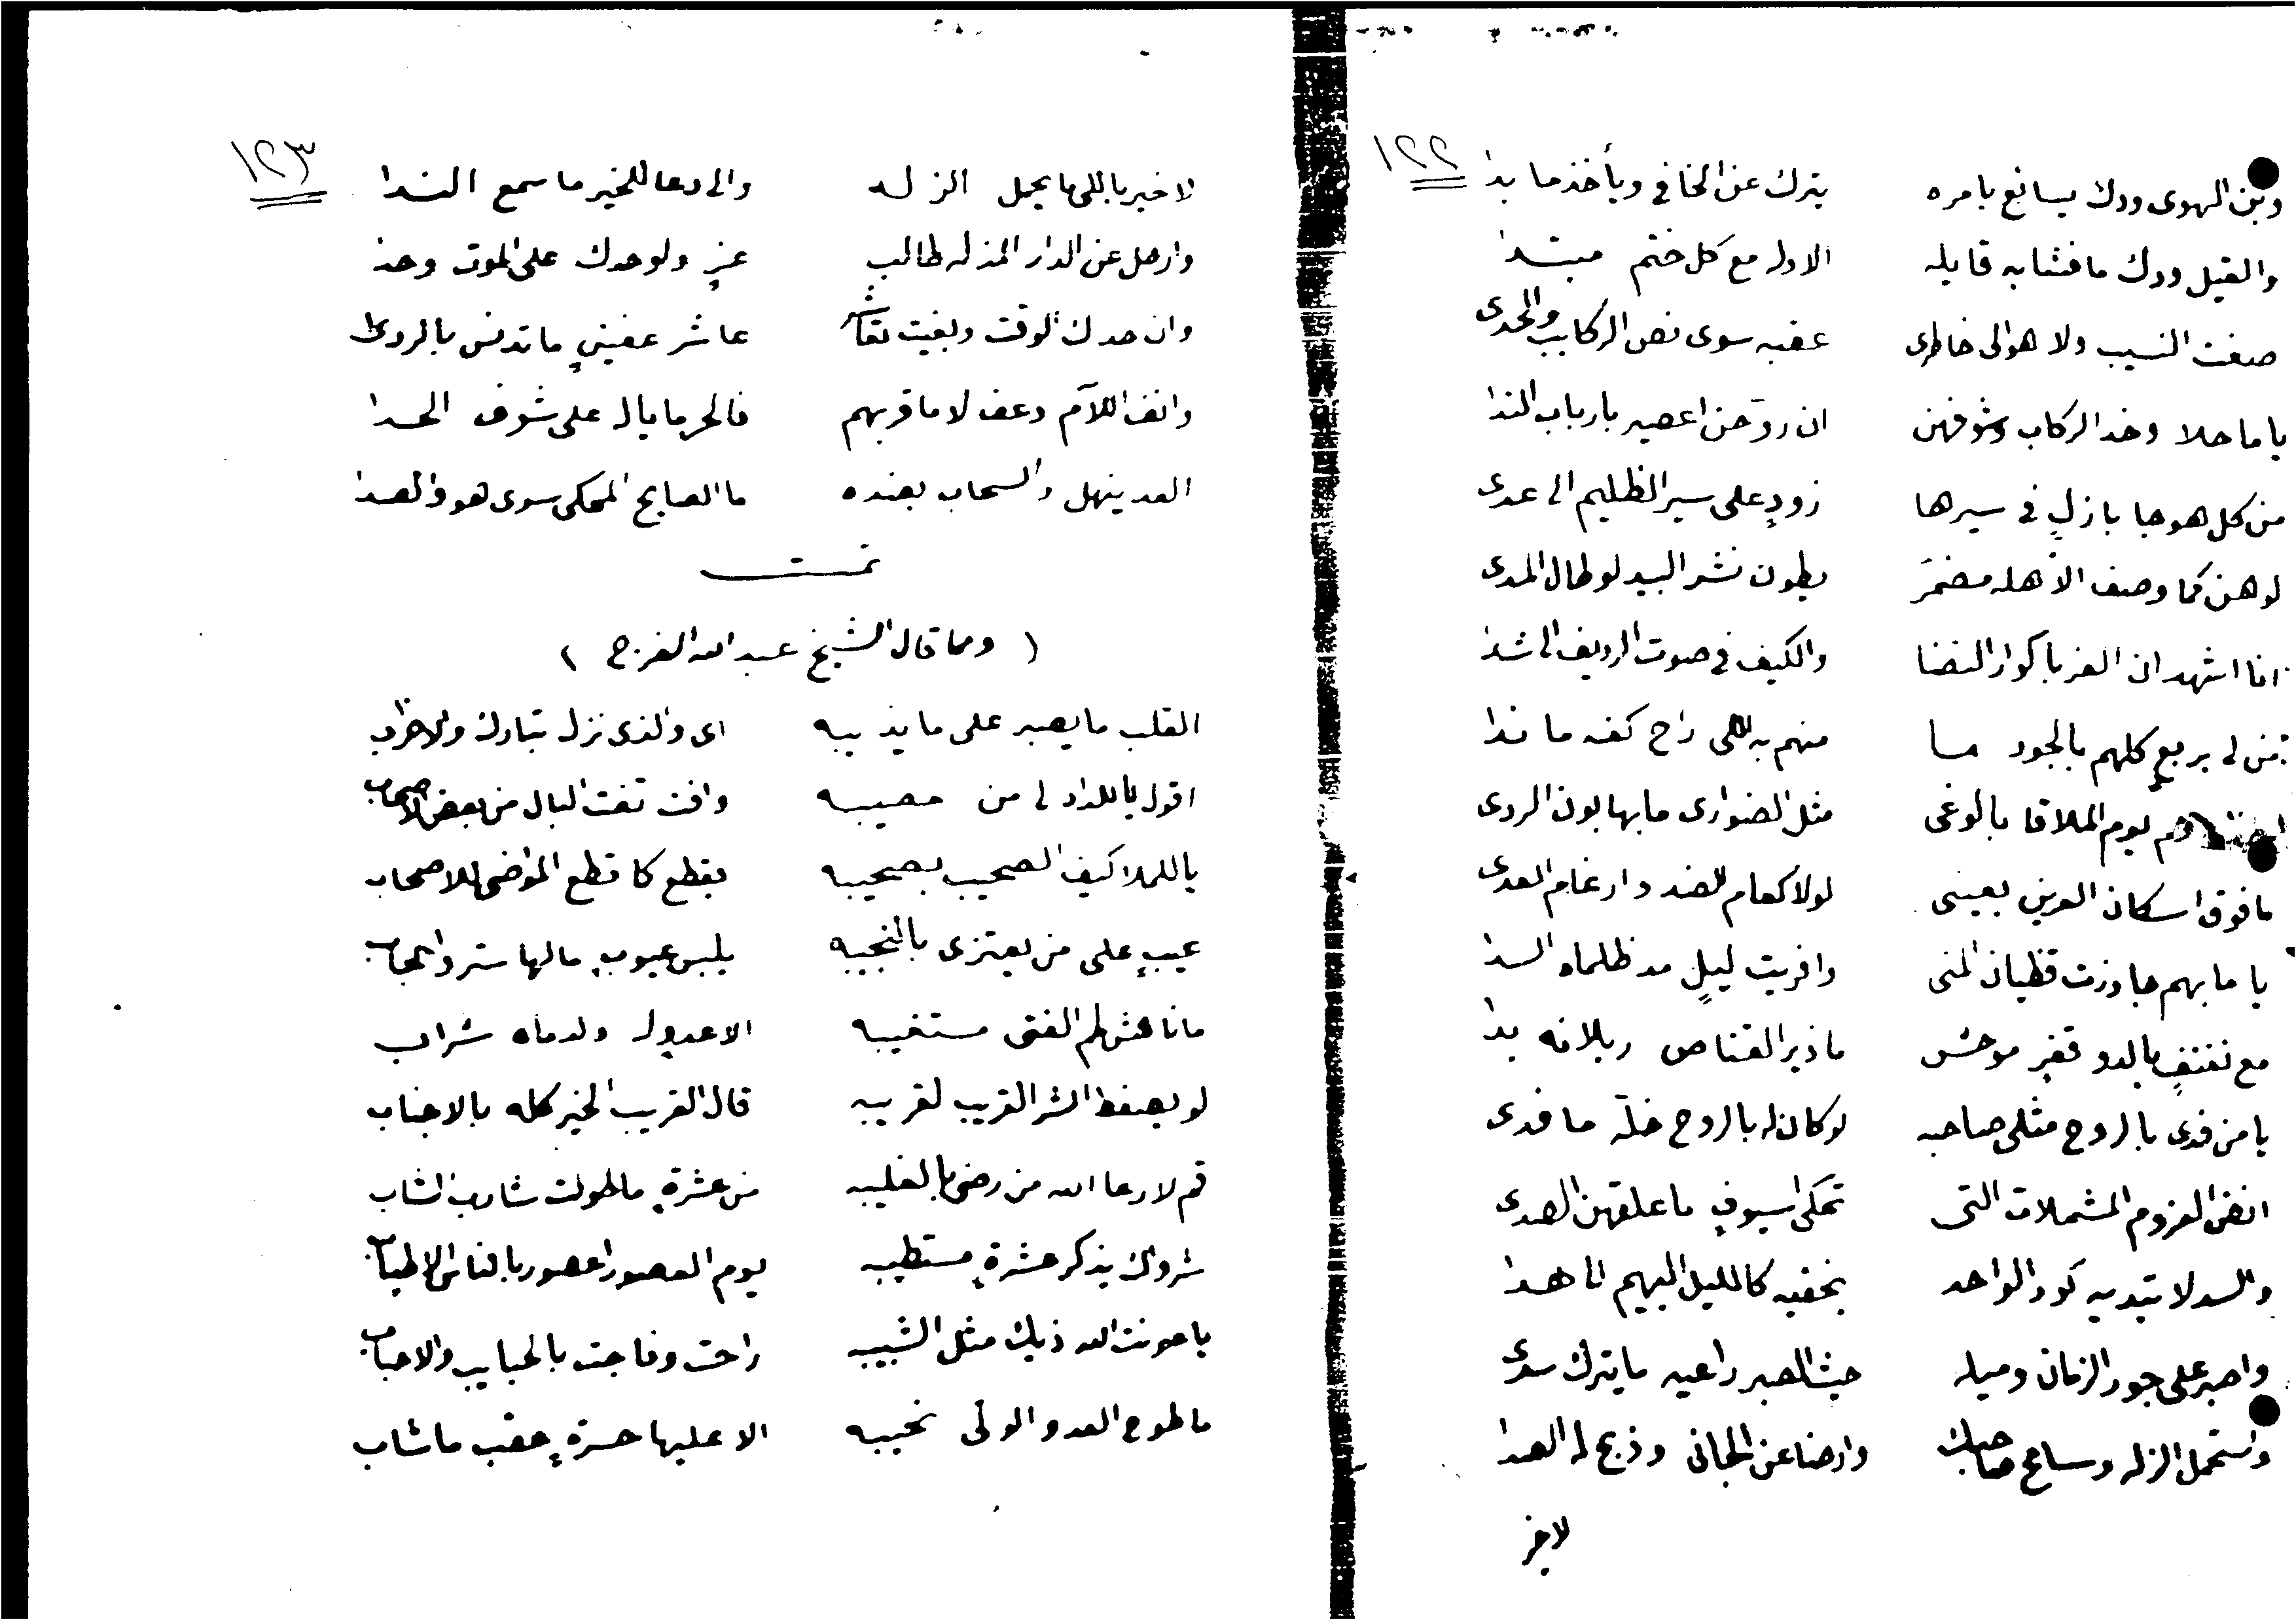 ١٢٢
وبن الهوى ودك يسانع بامره يترك عن الخافي ويأخذ ما بدا
والقيل ودك ما فشا به قايله الاوله مع كل ختم مبتدا
صغت النسيب ولا هوالى خاطرى عقبه سوى نص الركايب والحدى
ياما حلا وخذ الركاب وشوفهن ان روحن اعصير بارباب الندا
من كل هوجا بازلٍ في سيرها زودٍ على سير الظليم الى عدى
لوهن كما وصف الأهله مضمر يطون نشر البيد لو طال المدى
انا اشهد ان العز باكوار النضا والكيف في صوت الرديف الى شدا
من لى بربعٍ كلهم بالجود ما منهم به اللى راح كفه ما ندا
يوم الملاقا بالوغى مثل الضوارى ما يهابون الردى
ما فوق اسكان العرين بعينى لولا كعام الضد وارغام العدى
يا ما بهم جاوزت قظيان المنى وافريت ليلٍ مد ظلماه السدا
مع نفنفٍ بالدو قفرٍ موحش ماذير القناص ربلانه بدا
يا من فدى بالروح مثلى صاحبه لو كان له بالروح خلّة ما فدى
انض العزوم المشملات التى تحكى اسيوفٍ ما علقهن الصدى
والسد لا تبديه كود الواحد بخفيه كالليل البهيم الا هدا
واصبر على جور الزمان وميله حيث الصبر راعيه ما يترك سدى
واستحمل الزله وسامح صاحبك وارضا عن الجانى وذبح له العدا
لاخر
١٢٣
لا خير باللى ما يحمل الزله والى دعا للخير ما سمع الندا
وارحل عن الدار المذله طالب عزٍ ولو حدك على الموت وحدا
وان حدك الوقت وبغيت تعاشر عاشر عفيفٍ ما تدنس بالردى
وانف اللآم وعف لا ما قربهم فالحر ما يال على شوف الحدا
العد ينهل والسحاب بعنده ما الصايح المحكى سوى هو والصدا
تمت
( ومما قال الشيخ عبدالله الفرج )
القلب ما يصبر على ما يذيبه اى والذى نزل تبارك والاحزاب
اقول ياللداد لى من مصيبه وافت تفت البال من بعض الاصحاب
ياللملا كيف الصحيب بصحيبه يقطع كما قطع المواضى للاصحاب
عيبٍ على من يعتزى بالنجيبه يلبس عيوبٍ مالها ستر واحجاب
مانا هش لحم الفتى مستغيبه الا عدوله ولدماه شراب
لو يصفط الشر القريب لقريبه قال القريب الخير كله بالاجناب
قم لا رعا الله من رضى بالغليبه من عشرةٍ ما طولت شارب الشاب
شرواك يذكر عشرةٍ مستطيبه يوم العصور اعصور بالناس الاطياب
يا عونت الله ذيك مثل الشبيبه راحت وفاجت بالحبايب والاحباب
ما طوح العدو الوتى نحيبه الا عليها حسرةٍ عقب ما شاب